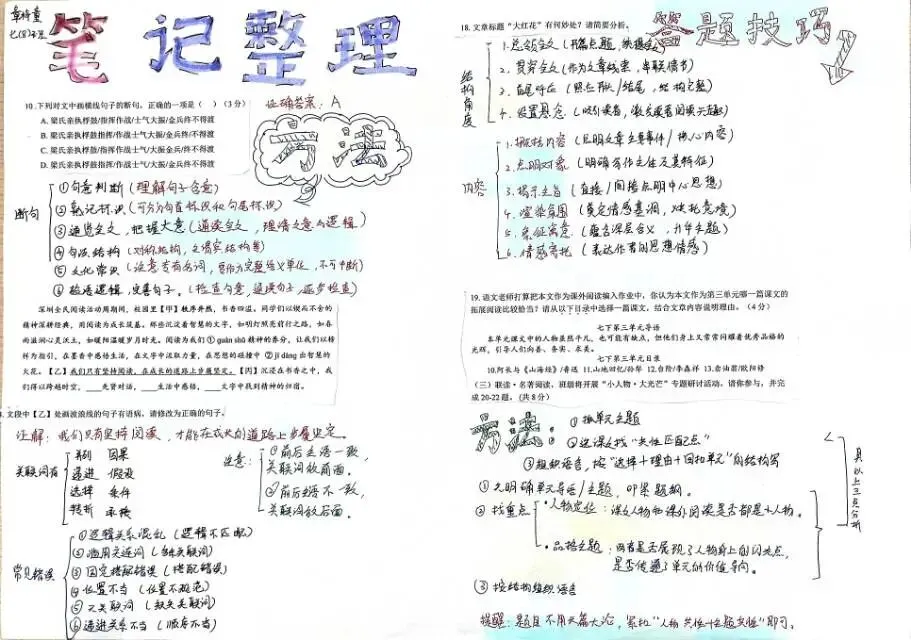 七(8)班
笔记整理
10.下列对文中画横线句子的断句,正确的一项是( )(3分)
正确答案:A
A. 梁氏亲执桴鼓/指挥作战/士气大振/金兵终不得渡
B. 梁氏亲执桴鼓指挥/作战士气大振/金兵/终不得渡
C. 梁氏亲执桴鼓/指挥作战士气/大振/金兵/终不得渡
D. 梁氏亲执桴鼓指挥/作战士气/大振/金兵终不得渡
方法
断句
①句意判断(理解句子含意)
②熟记标识(可分为句首标识和句尾标识)
③通览全文,把握大意(通读全文,理清文意与逻辑)
④句法结构(对称结构,主谓宾结构等)
⑤文化常识(注意专有名词,不可中断)
⑥检查逻辑,完善句子。(检查句意,逐步检查)
深圳全民阅读活动周期间,校园里【甲】秩序井然,书香四溢。同学们以锲而不舍的
精神深耕经典,用阅读为成长筑基。那些沉淀着智慧的文字,如明灯照亮前行之路,如春
雨滋润心灵沃土,如暖阳温暖岁月时光。阅读为我们① guàn shū 精神的养分,让我们以榜
样为指引,在墨香中感悟生活,在文字中汲取力量,在思想的碰撞中 ② jī dàng 出智慧的
火花。【乙】我们只有坚持阅读,在成长的道路上步履坚定。【丙】沉浸在书香之中,我
们得以跨越时空,____先贤对话,____生活中感悟,____文字中找到精神的归宿。
文段中【乙】处画波浪线的句子有语病,请修改为正确的句子。
正解:我们只有坚持阅读,才能在成长的道路上步履坚定。
关联词有
并列 因果
递进 假设
选择 条件
转折 承接
注意:
①前后主语一致,
关联词放前面。
②前后主语不一致,
关联词放后面。
常见错误
①逻辑关系混乱(逻辑不匹配)
②滥用关联词
③固定搭配错误(搭配错误)
④位置不当(位置不规范)
⑤无关联词(缺失关联词)
⑥递进关系不当(顺序不当)
答题技巧
18. 文章标题“大红花”有何妙处?请简要分析。
结构角度
1. 总领全文
2. 贯穿全文(作为文章线索,串联情节)
3. 首尾呼应(照应开头/结尾,结构完整)
4. 设置悬念(吸引读者,激发读者阅读兴趣)
内容
1. 概括内容(点明文章主要事件/核心内容)
2. 点明对象(明确写作主体及其特征)
3. 揭示主旨(直接/间接点明中心思想)
4. 渲染氛围(奠定情感基调,烘托意境)
5. 象征寓意(蕴含深层含义,升华主题)
6. 情感寄托(表达作者的思想情感)
19. 语文老师打算把本文作为课外阅读编入作业中,你认为本文作为第三单元哪一篇课文的
拓展阅读比较恰当?请从以下目录中选择一篇课文,结合文章内容说明理由。(4分)
七下第三单元导语
本单元课文中的人物虽然平凡,也可能有缺点,但他们身上又常常闪耀着优秀品格的
光辉,引导人们向善、务实、求美。
七下第三单元目录
10.阿长与《山海经》/鲁迅 11.山地回忆/孙犁 12.台阶/李森祥 13.卖油翁/欧阳修
(三)联读·名著阅读,班级将开展“小人物·大光芒”专题研讨活动,请你参与,并完
成20-22题。(共8分)
方法:
①扣单元主题
②选课文找“共性匹配点”
③组织语言,按“选择+理由+回扣单元”的结构写
①先明确单元导语/主题,
②找重点
·人物定位:课文人物和课外阅读是否都是小人物。
·品格主题:两者是否展现了人物身上的闪光点,
是否传递了单元的价值导向。
③按结构组织语言
从以上三点分析
提醒:题目不用长篇大论,紧扣“人物共性+主题”即可。